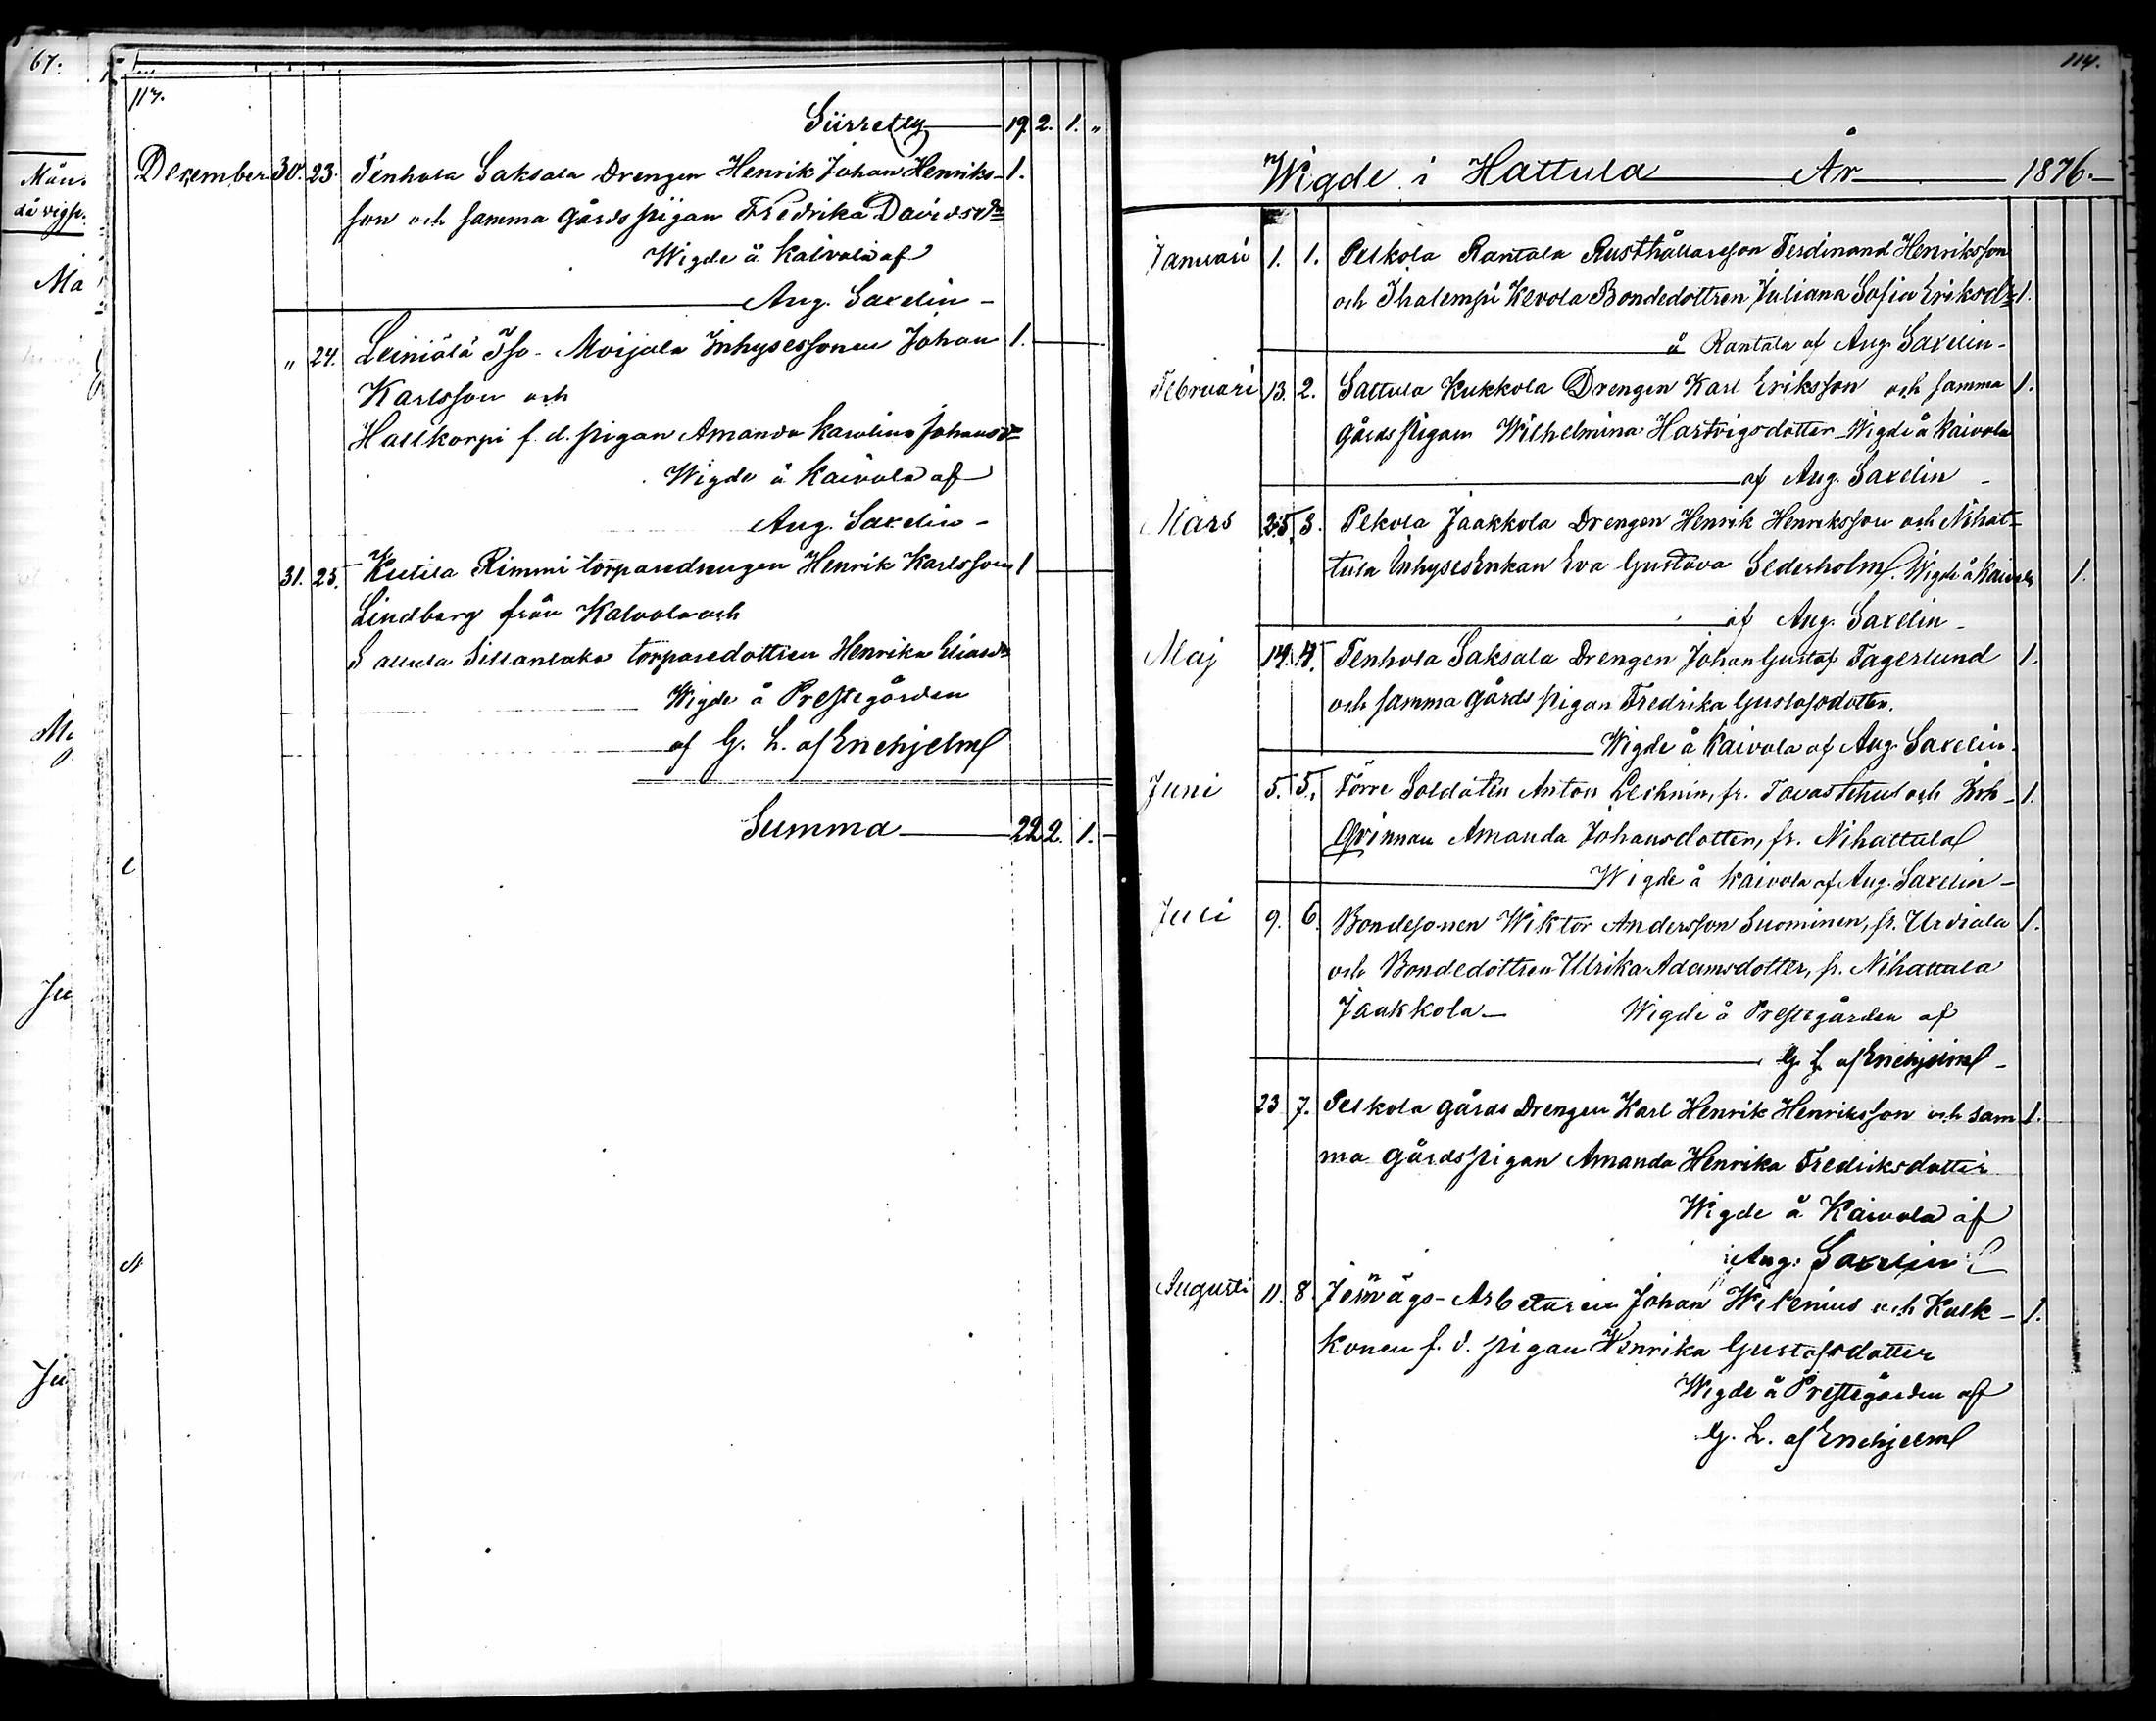 67.
Män.
de vigs.
Ma
Ju
Ju
113.
Siirretty 19. 2. 1. "
December 30. 23. Tenhola Saksala Drengen Henrik Johan Henriks- 1.
son och samma gårds pigan Fredrika Davidsdr
Wigde å Kaivola af
Aug. Saxelin -
" 24. Leiniälä Iso-Moijala Inhysessonen Johan 1.
Karlsson och
f. d. pigan Amanda Karolina Johansdr
Wigde å Kaivola af
Aug. Saxelin -
31. 25. Kutila Rimmi torparedrengen Henrik Karlsson 1
Lindberg från Kalvola och
Sattula Sillanlaka torparedottren Henrika Eliasdr
Wigde å Prestegården
af G. L. af Enehjelm
Summa 22 2. 1. -
114.
Wigde i Hattula År 1876.
Januari 1. 1. Pelkola Rantala Rusthållaresson Ferdinand Henriksson
och Ihalempi Kevola Bondedottren Juliana Sofia Eriksdr 1.
å Rantala af Aug. Saxelin -
Februari 13. 2. Sattula Kukkola Drengen Karl Eriksson och samma 1.
gårds pigan Wilhelmina Hartvigsdotter Wigde å Kaivola
af Aug. Saxelin -
Mars 25. 3. Pelkola Jaakkola Drengen Henrik Henriksson och Nihat-
tula Inhyses Enkan Eva Gustava Sederholm. Wigde å Kaivola 1.
af Aug. Saxelin -
Maj 14. 4. Tenhola Saksala Drengen Johan Gustaf Fagerlund 1.
och samma gårds pigan Fredrika Gustafsdotter.
Wigde å Kaivola af Aug. Saxelin.
Juni 5. 5. Förre Soldaten Anton fr. Tavastehus och Inh- 1.
qvinnan Amanda Johansdotter, fr. Nihattula
Wigde å Kaivola af Aug. Saxelin -
Juli 9. 6. Bondesonen Wiktor Andersson Suominen, fr. Urdiala 1.
och Bondedottren Ulrika Adamsdotter, fr. Nihattula
Jaakkola - Wigde å Prestegården af
G. L. af Enehjelm -
23 7. Pelkola gårds Drengen Karl Henrik Henriksson och sam 1.
ma gårdspigan Amanda Henrika Fredriksdotter
Wigde å Kaivola af
Aug. Saxelin
Augusti 11. 8. Jernvägs-Arbetaren Johan Wilenius och Kalk- 1.
konen f. d. pigan Henrika Gustafsdotter
Wigde å Prestegården af
G. L. af Enehjelm